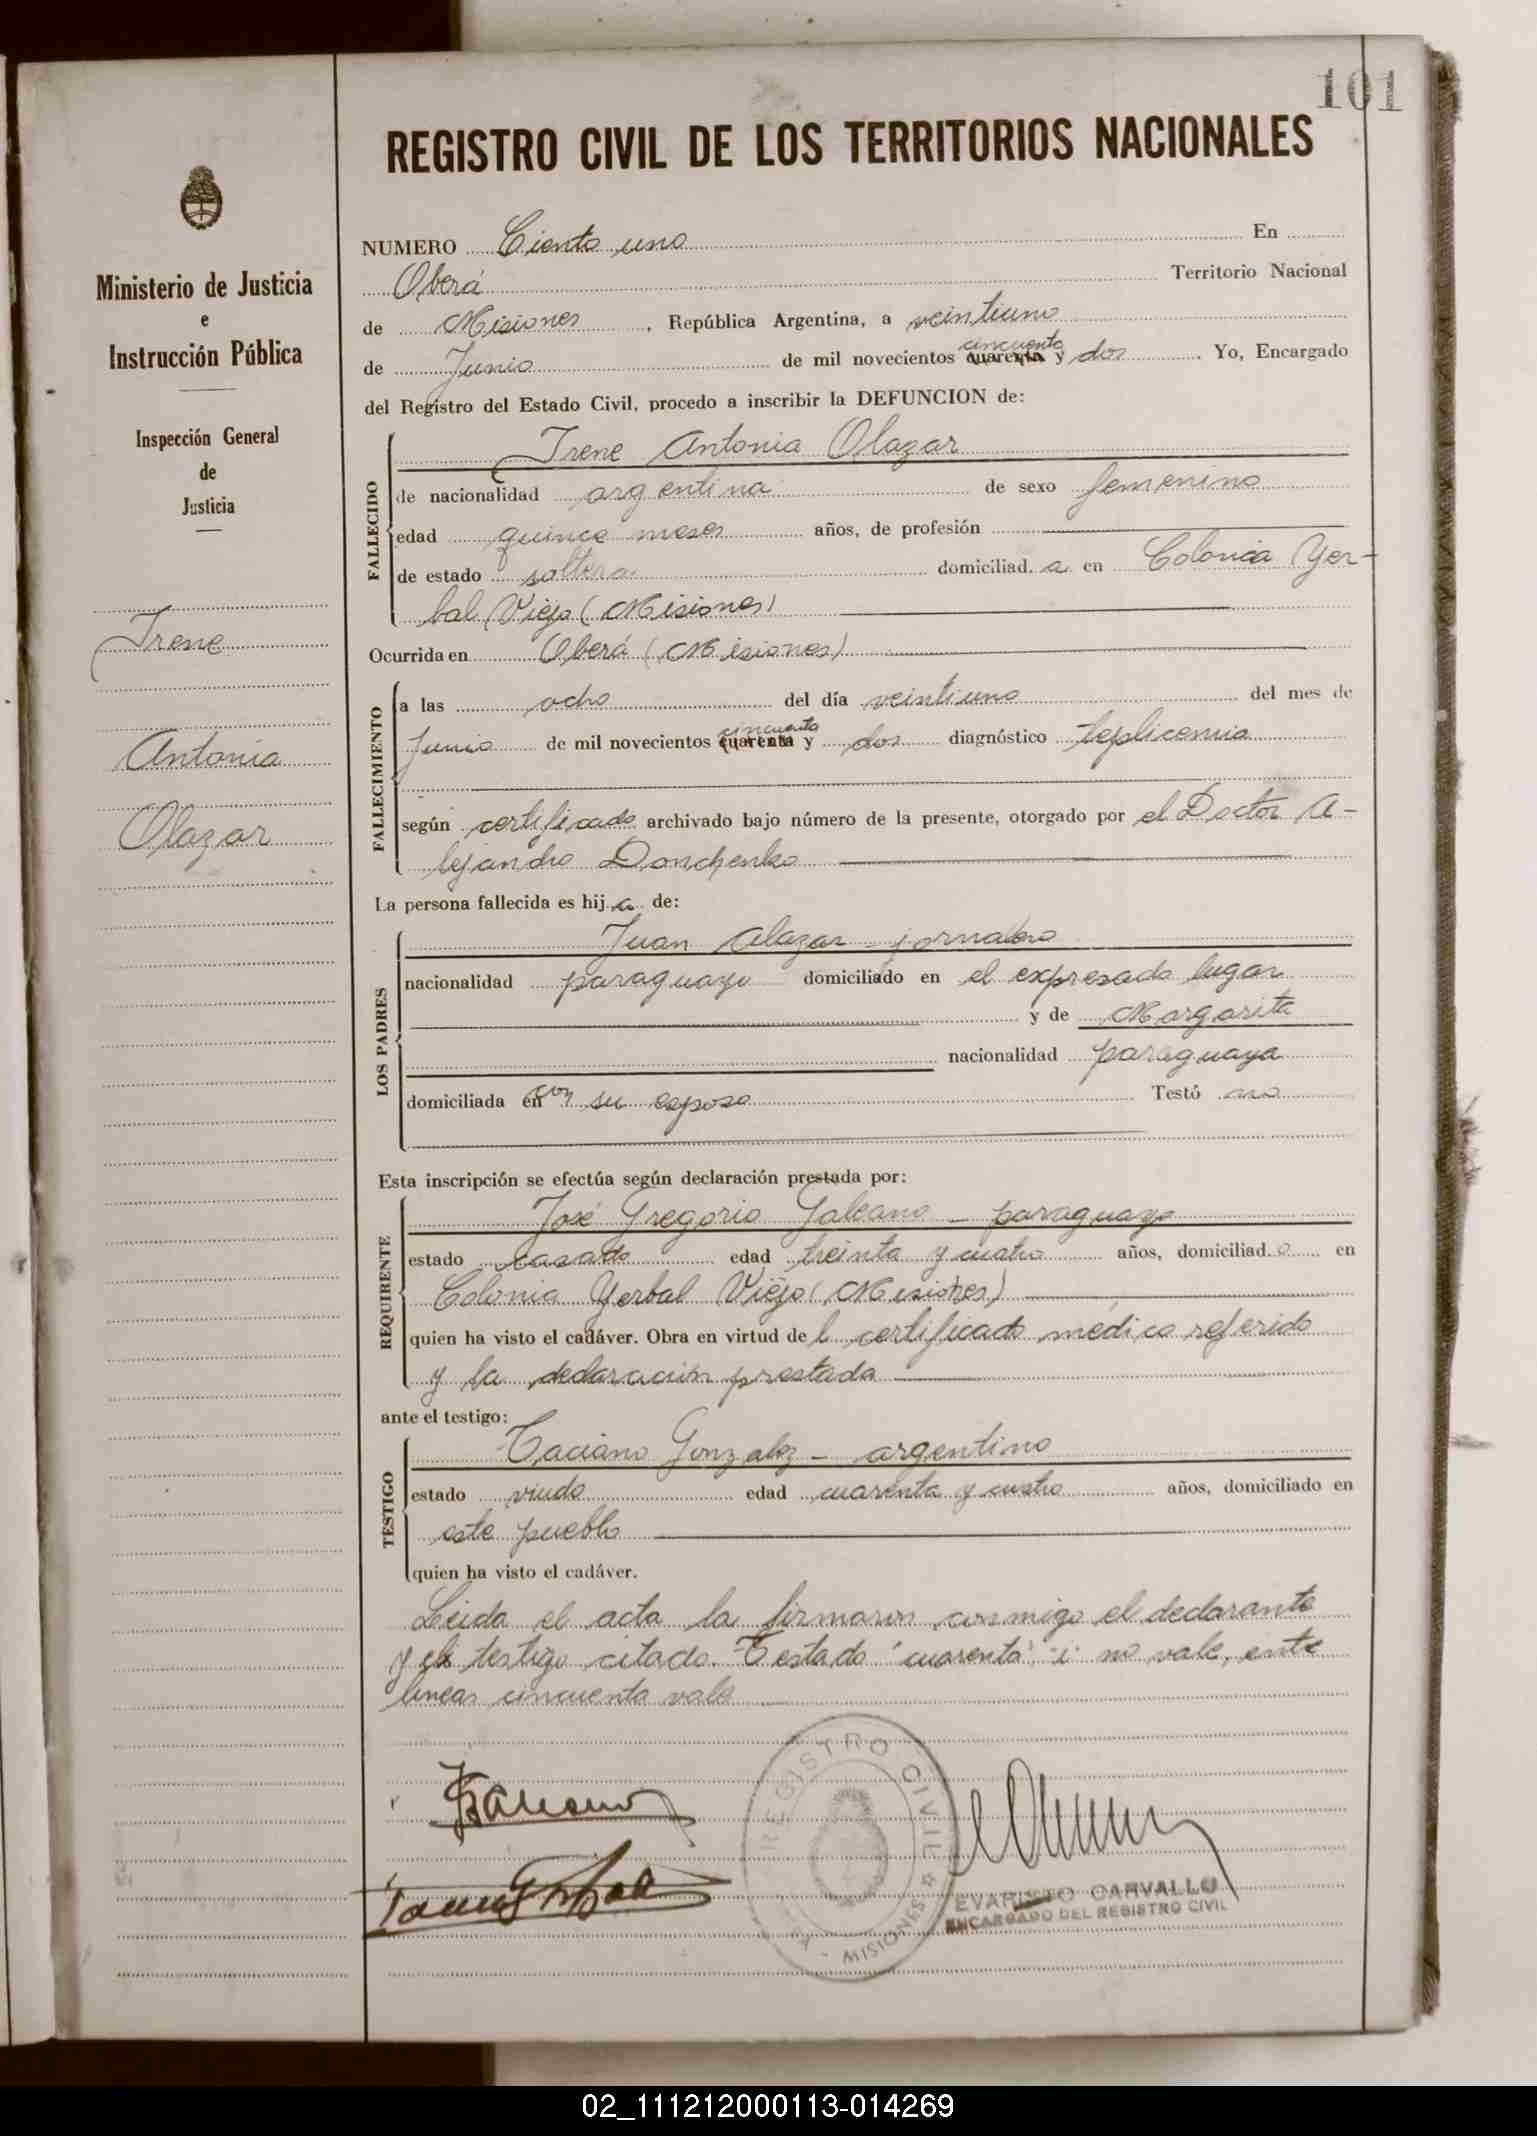 101
REGISTRO CIVIL DE LOS TERRITORIOS NACIONALES
Ministerio de Justicia
e
Instrucción Pública
Inspección General
de
Justicia
Irene
Antonia
Olazar
NUMERO Ciento uno En
Oberá Territorio Nacional
de Misiones, República Argentina, a veintiuno
cincuenta
de Junio de mil novecientos cuarenta y dos. Yo, Encargado
del Registro del Estado Civil, procedo a inscribir la DEFUNCION de:
FALLECIDO
Irene Antonia Olazar
de nacionalidad argentina de sexo femenino
edad quince meses años, de profesión
de estado soltera domiciliad a en Colonia Yer-
bal Viejo (Misiones)
Ocurrida en Oberá (Misiones)
FALLECIMIENTO
a las ocho del día veintiuno del mes de
cincuenta
Junio de mil novecientos cuarenta y dos diagnóstico Septicemia
según certificado archivado bajo número de la presente, otorgado por el Doctor A-
lejandro Donchenko
La persona fallecida es hij a de:
LOS PADRES
Juan Olazar - jornalero
nacionalidad paraguayo domiciliado en el expresado lugar
y de Margarita
nacionalidad paraguaya
domiciliada en con su esposo Testó no
Esta inscripción se efectúa según declaración prestada por:
REQUIRENTE
José Gregorio Galeano - paraguayo
estado casado edad treinta y cuatro años, domiciliad o en
Colonia Yerbal Viejo (Misiones)
quien ha visto el cadáver. Obra en virtud de l certificado médico referido
y la declaración prestada
ante el testigo:
TESTIGO
Taciano Gonzalez - argentino
estado viudo edad cuarenta y cuatro años, domiciliado en
este pueblo
quien ha visto el cadáver.
Leida el acta la firmaron conmigo el declarante
y el testigo citado. Testado "cuarenta" i no vale, entre
lineas cincuenta vale
REGISTRO CIVIL
MISIONES
EVARISTO CARVALLO
ENCARGADO DEL REGISTRO CIVIL
02_111212000113-014269